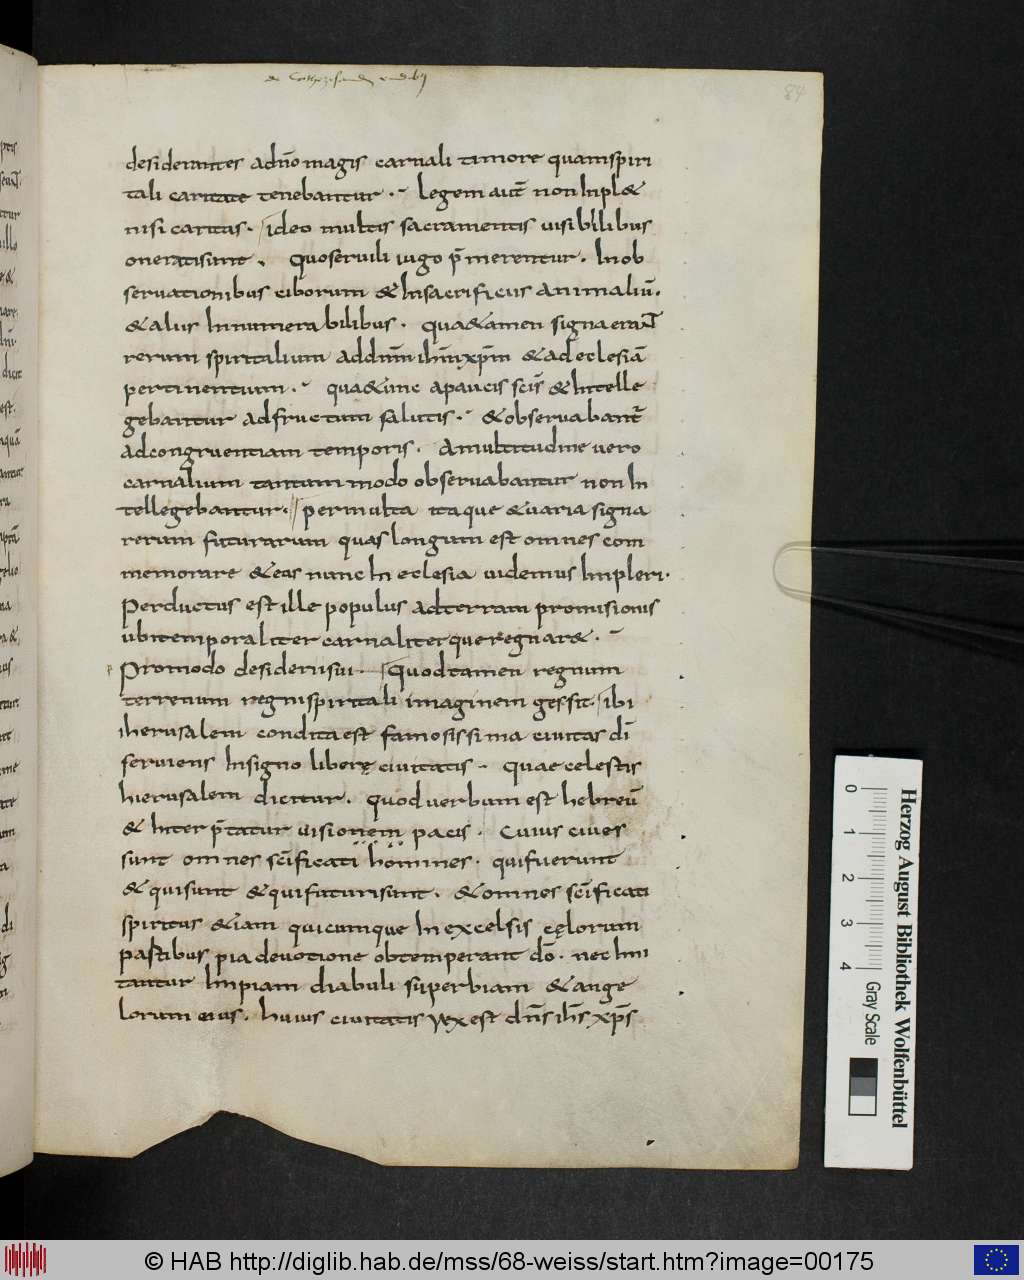 de Cathezisandis rudibus
84
desiderantes ad nūo magis carnali timore quam spiri
tali caritate tenebantur · legem aūt non Inpl&
nisi caritas · ideo multis sacramentis visibilibus
onerati sunt · Quo servili iugo p̄merentur · In ob
servationibus ciborum & In sacrificiis animaliū·
& aliis Innumerabilibus · quae & tamen signa erant
rerum spiritalium ad dn̄m ih̄m xp̄m & ad eclesiā
pertinentium · quae & tunc a paucis sc̄is & Intelle
gebantur ad fructum salutis · & observabant̄
ad congruentiam temporis · A multitudine vero
carnalium tantum modo observabantur non In
tellegebantur · per multa itaque & varia signa
rerum futurarum quas longum est omnes com
memorare & eas nunc In eclesia videmus Impleri·
Perductus est ille populus ad terram promisionis
ubi temporaliter carnaliterque regnar& ·
Pro modo desiderii sui · Quod tamen regnum
terrenum regni spiritali imaginem gessit · ibi
iherusalem condita est famosissima civitas dī
serviens In signo liberę civitatis · Quae celestis
hierusalem dicitur · quod verbum est hebreū
& Interp̄tatur visionem pacis · Cuius cives
sunt omnes sc̄ificati homines · qui fuerunt
& qui sunt & qui futuri sunt · & omnes sc̄ificati
spiritus & iam quicumque In excelsis cęlorum
partibus pia devotione obtemperant dō · nec Imi
tantur Impiam diabuli superbiam & ange
lorum eius · huius civitatis rex est dn̄s ih̄s xp̄s
0 1 2 3 4 Gray Scale
Herzog August Bibliothek Wolfenbüttel
© HAB http://diglib.hab.de/mss/68-weiss/start.htm?image=00175